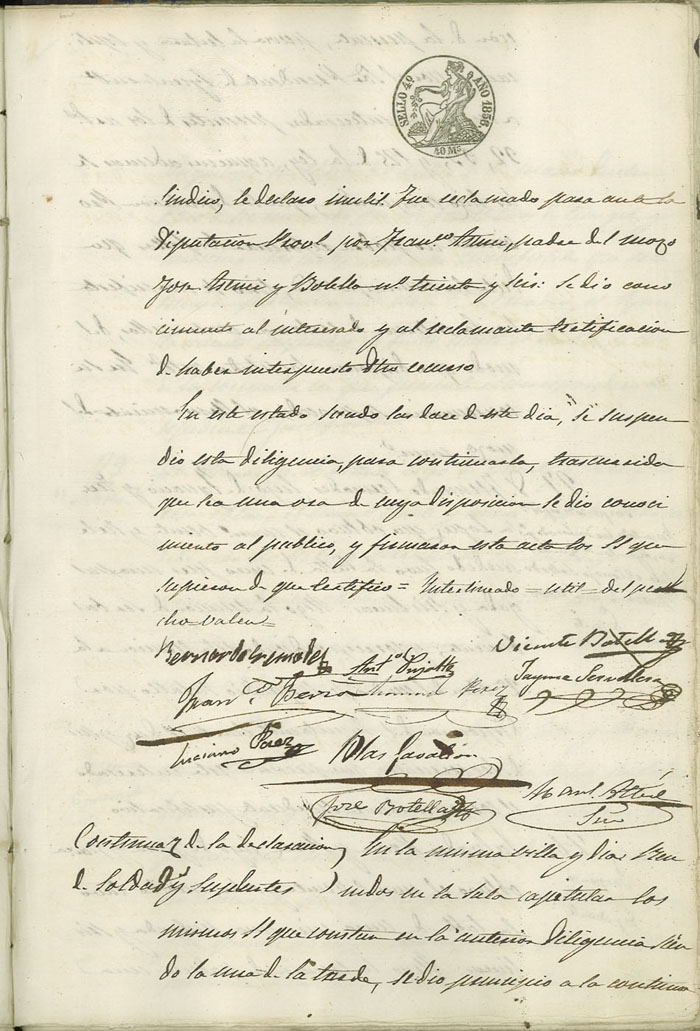 SELLO 4º AÑO 1858.
40 Ms.
Sindico, le declaro inutil. Fue reclamado para ante la
Diputacion Provl. por Franco. Asensi, padre del mozo
José Asensi y Botella nº. treinta y seis: se dio cono
cimiento al interesado y al reclamante Certificacion
de haber interpuesto dho recurso
En este estado siendo las doce de este dia, se suspen
dio esta diligencia, para continuarla, trascurrida
que sea una ora de cuya disposicion se dio conoci
miento al publico, y firmaron esta acta los SS que
supieron de que Certifico = Interlineado = util = del pre
cho valen =
Vicente Botella
Bernardo Antº
Franco. Jayme
Luciano Perez Blas
José Botella Manl.
Continuaz. de la declaracion En la misma villa y dia: Reu
de Soldads. y Suplentes nidos en la sala capitular los
mismos SS que constan en la anterior diligencia sien
do la una de la tarde, se dio principio a la continua